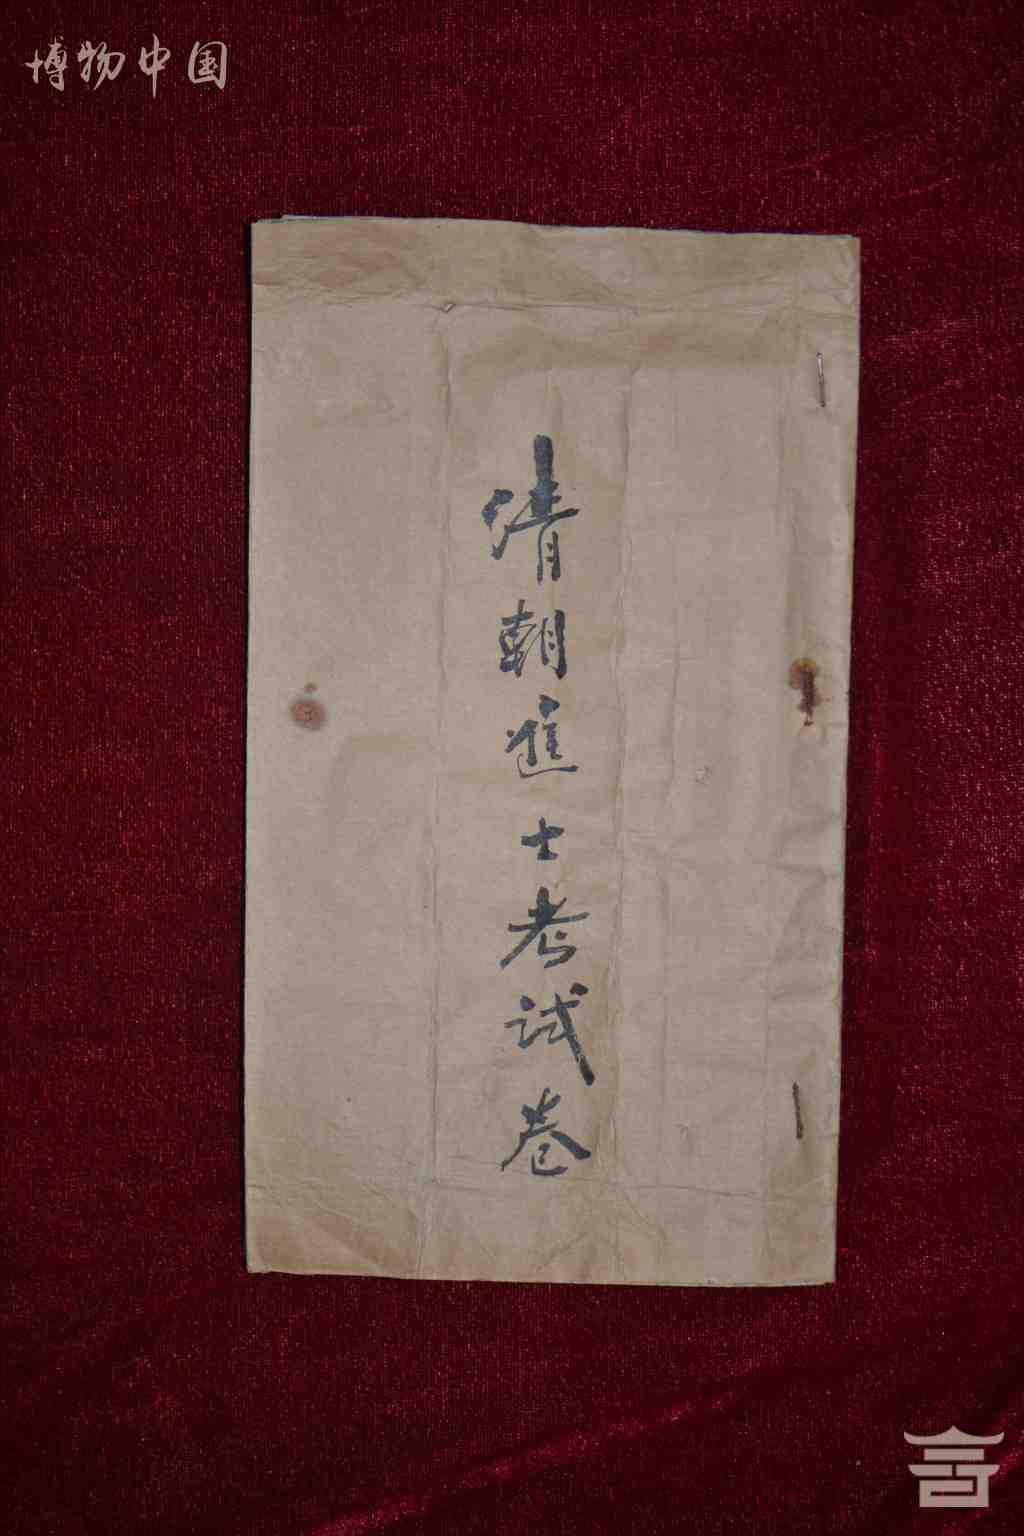 博物中国
清朝進士考试卷